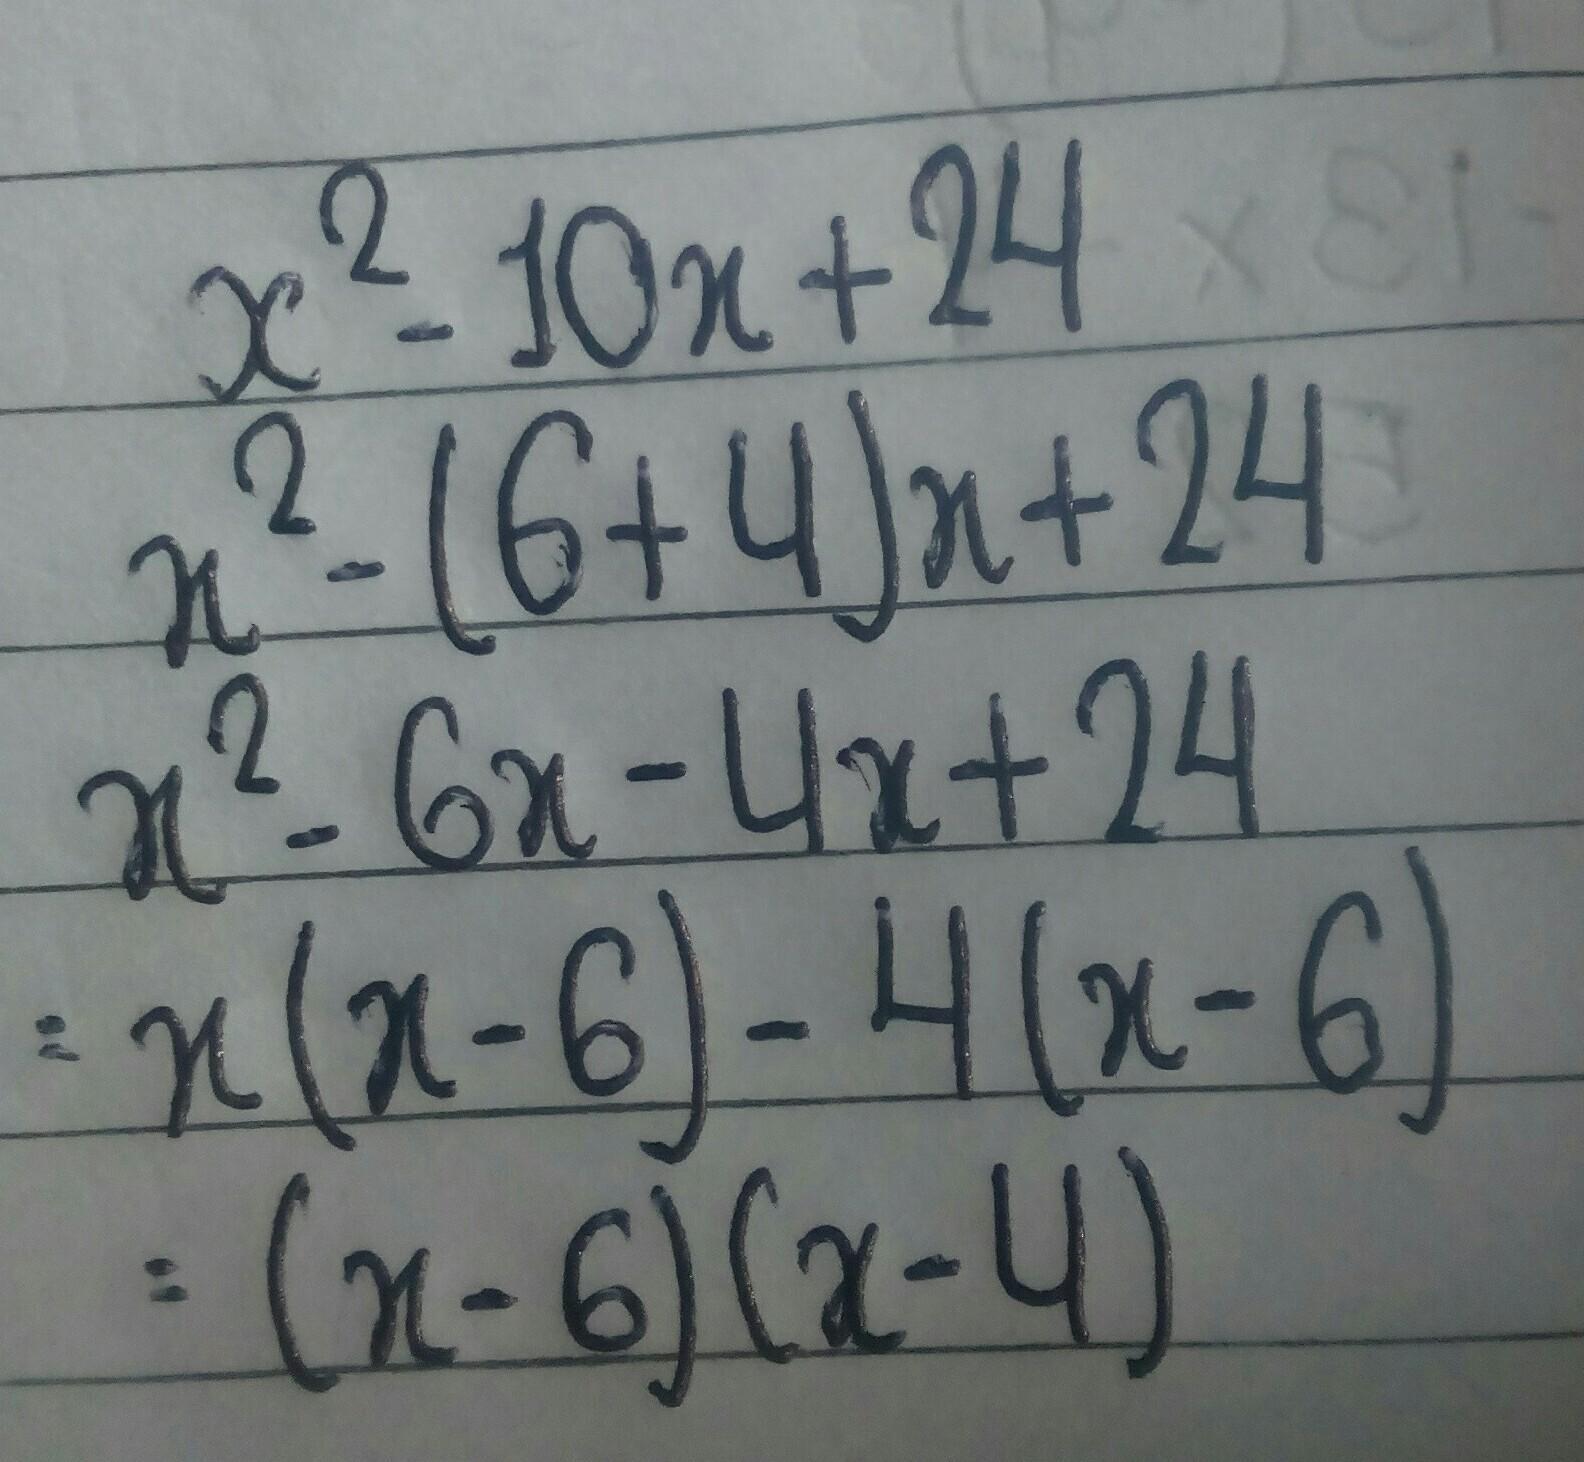 x² - 10x + 24
x² - (6+4)x + 24
x² - 6x - 4x + 24
= x(x-6) - 4(x-6)
= (x-6)(x-4)